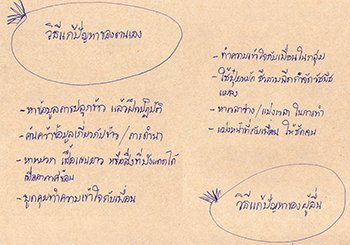 วิธีแก้ปัญหาของตนเอง
- หาข้อมูลการปลูกข้าว แล้วฝึกปฏิบัติ
- ค้นคว้าข้อมูลเกี่ยวกับข้าว / การทำนา
- หาหมวก เสื้อแขนยาว หรือสิ่งที่บังแดดได้
เมื่ออากาศร้อน
- พูดคุยทำความเข้าใจกับเพื่อน
- ทำความเข้าใจกับเพื่อนในกลุ่ม
- ใช้ปุ๋ยหมัก ชีวภาพฉีดกำจัดวัชพืช
แมลง
- หาเวลาว่าง / แบ่งเวลา ในการทำ
- แบ่งหน้าที่กับเพื่อน ให้ชัดเจน
วิธีแก้ปัญหาของผู้อื่น